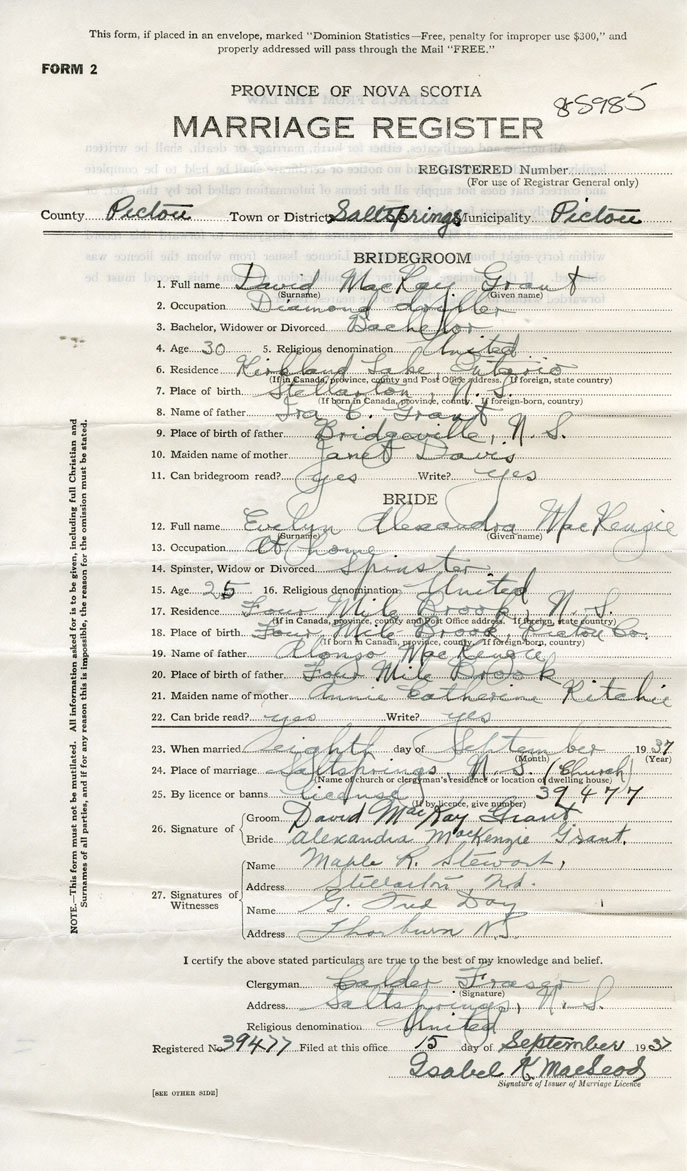 This form, if placed in an envelope, marked "Dominion Statistics—Free, penalty for improper use $300," and
properly addressed will pass through the Mail "FREE."
FORM 2
PROVINCE OF NOVA SCOTIA
85985
MARRIAGE REGISTER
REGISTERED Number
(For use of Registrar General only)
County Pictou Town or District Saltsprings Municipality Pictou
BRIDEGROOM
1. Full name David MacKay Grant
(Surname) (Given name)
2. Occupation Diamond driller
3. Bachelor, Widower or Divorced Bachelor
4. Age 30 5. Religious denomination United
6. Residence Kirkland Lake, Ontario
(If in Canada, province, county and Post Office address. If foreign, state country)
7. Place of birth Stellarton, N. S.
(If born in Canada, province, county. If foreign-born, country)
8. Name of father Ira E. Grant
9. Place of birth of father Bridgeville, N. S.
10. Maiden name of mother Janet Davis
11. Can bridegroom read? yes Write? yes
BRIDE
12. Full name Evelyn Alexandra MacKenzie
(Surname) (Given name)
13. Occupation At home
14. Spinster, Widow or Divorced Spinster
15. Age 25 16. Religious denomination United
17. Residence Four Mile Brook, N. S.
(If in Canada, province, county and Post Office address. If foreign, state country)
18. Place of birth Four Mile Brook, Pictou Co.
(If born in Canada, province, county. If foreign-born, country)
19. Name of father Alonso MacKenzie
20. Place of birth of father Four Mile Brook
21. Maiden name of mother Annie Catherine Ritchie
22. Can bride read? yes Write? yes
23. When married eighth day of September 1937
(Month) (Year)
24. Place of marriage Saltsprings, N. S. (Church)
(Name of church or clergyman's residence or location of dwelling house)
25. By licence or banns license 39477
(If by licence, give number)
26. Signature of
Groom David MacKay Grant
Bride Alexandra MacKenzie Grant.
27. Signatures of Witnesses
Name Maple R. Stewart,
Address Stellarton, N.S.
Name G. Fred Day
Address Thorburn NS
I certify the above stated particulars are true to the best of my knowledge and belief.
Clergyman Calder Fraser
(Signature)
Address Saltsprings, N. S.
Religious denomination United
Registered No. 39477 Filed at this office 15 day of September 1937
Isabel K MacLeod
Signature of Issuer of Marriage Licence
[SEE OTHER SIDE]
NOTE.—This form must not be mutilated. All information asked for is to be given, including full Christian and
Surnames of all parties, and if for any reason this is impossible, the reason for the omission must be stated.